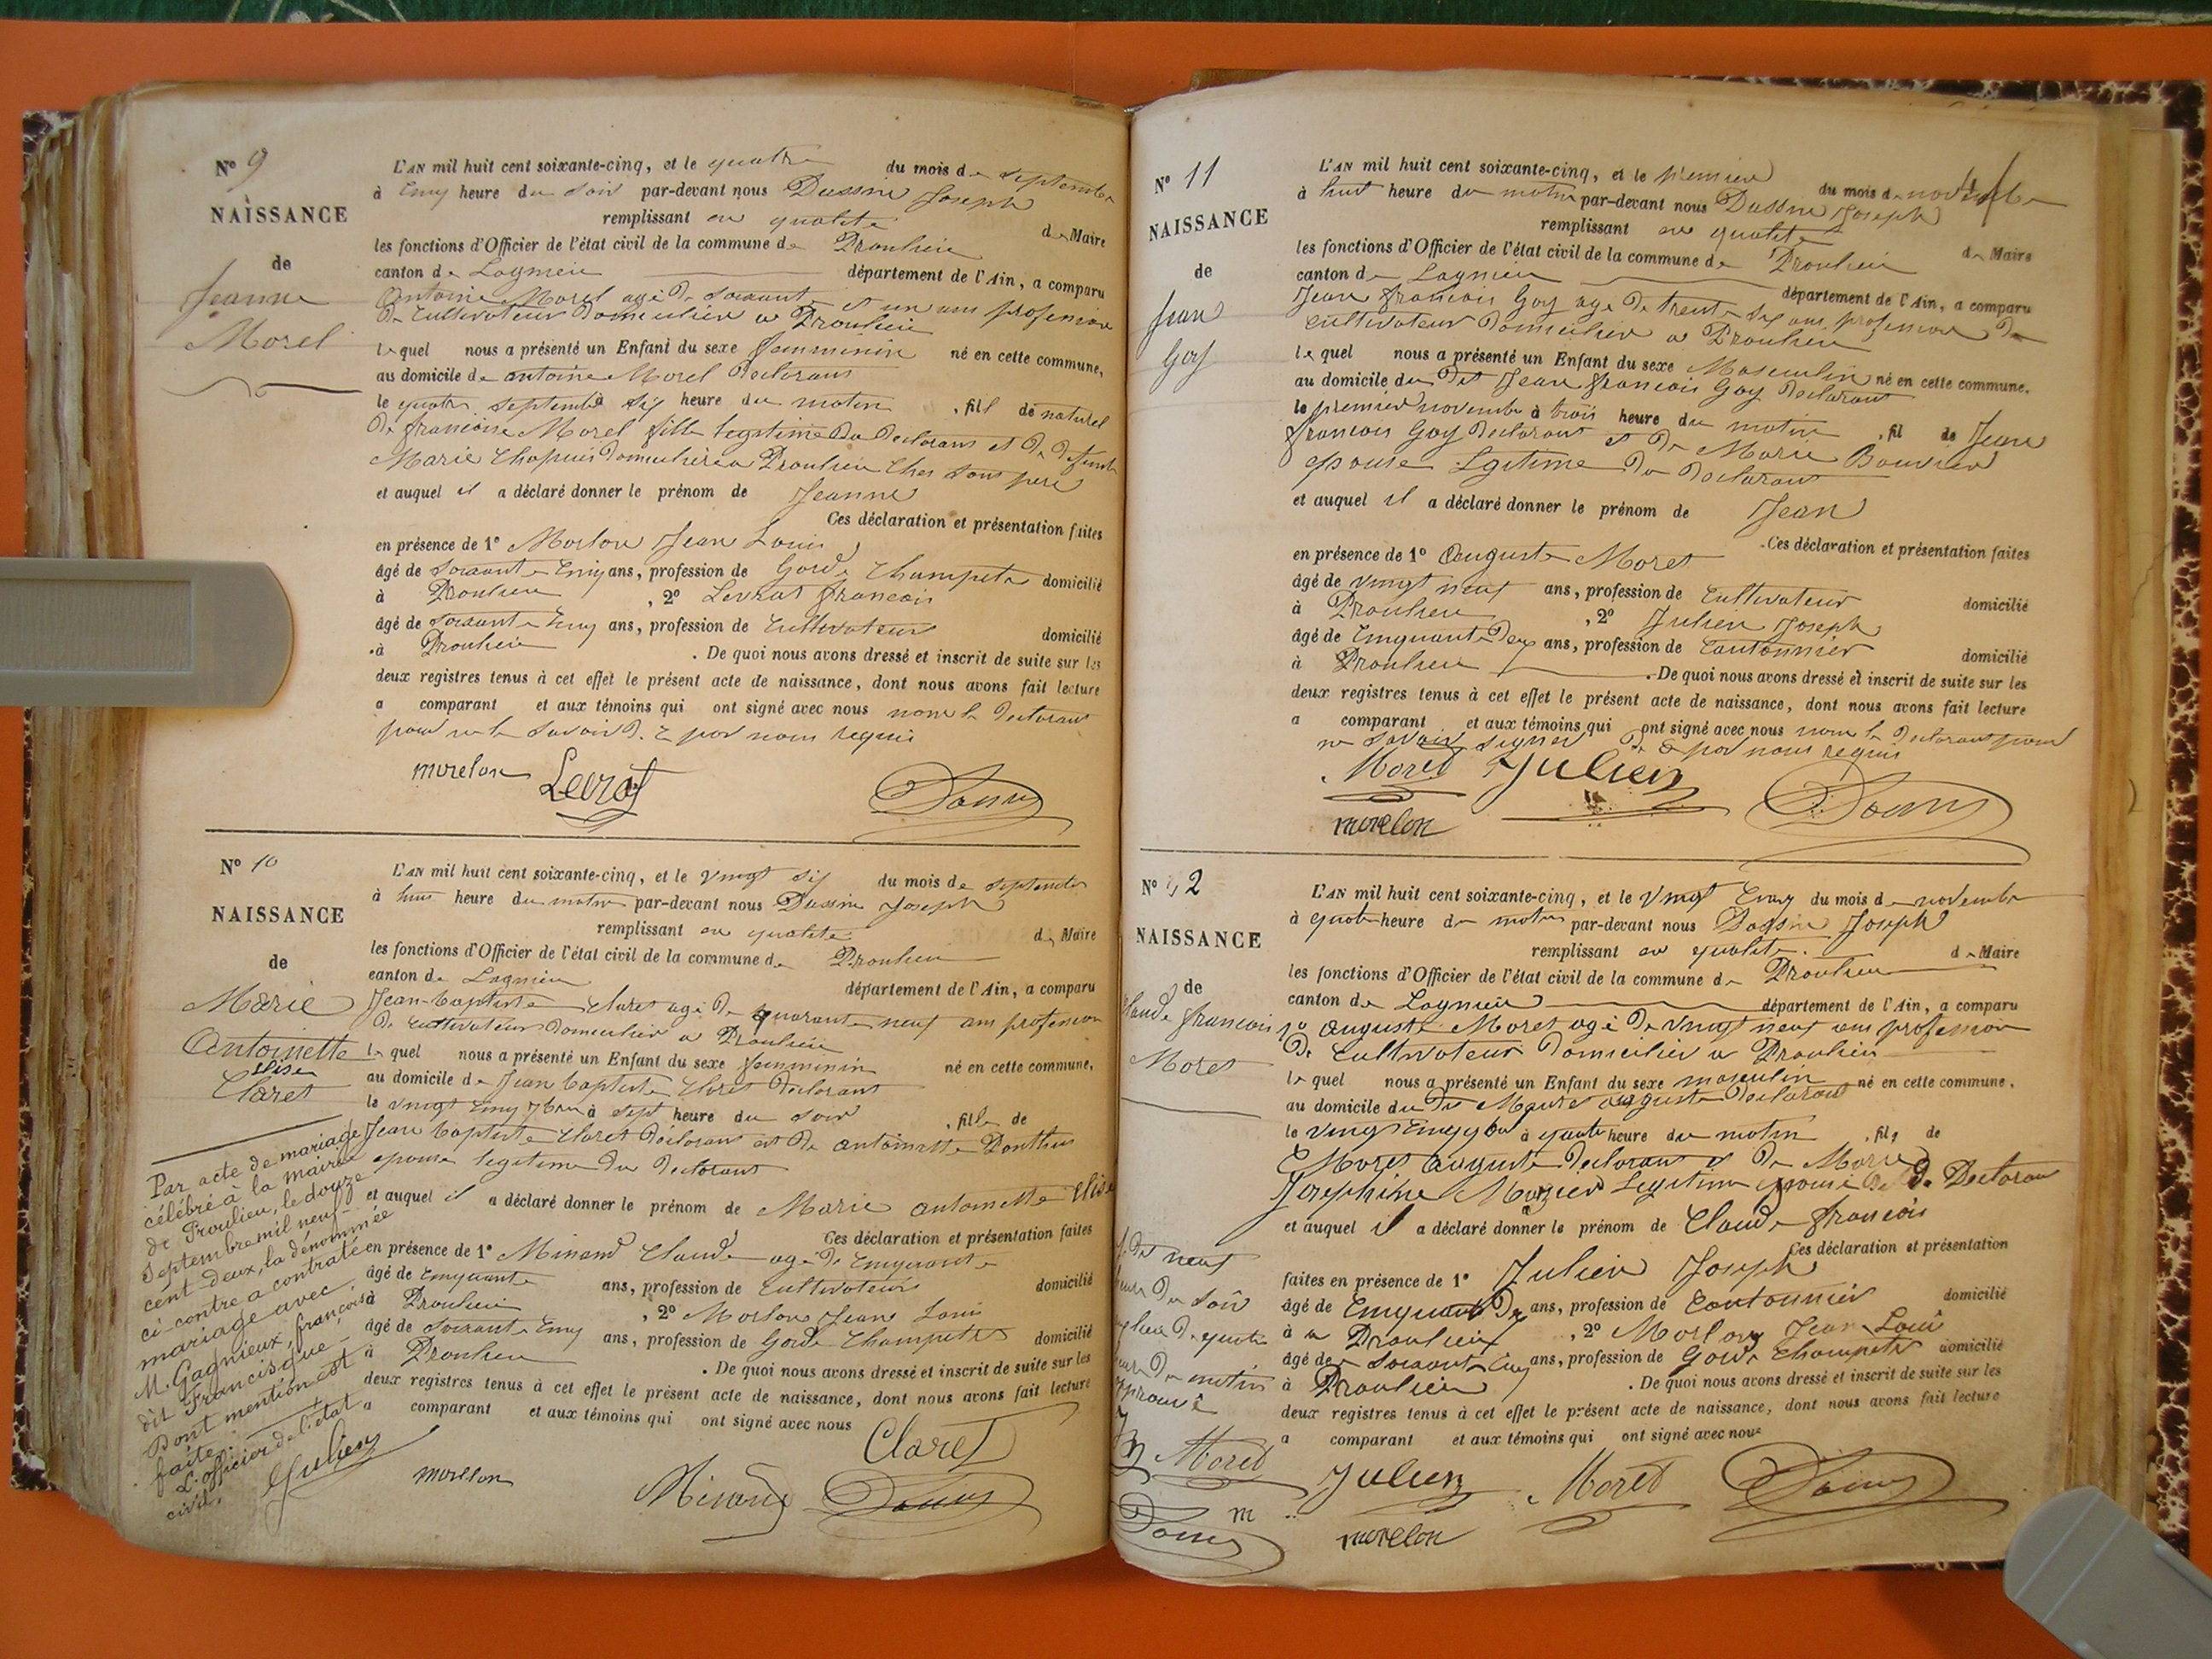 N° 9
NAISSANCE
de
Jeanne
Morel
L'AN mil huit cent soixante-cinq, et le quatre du mois de septembre
à cinq heure du soir par-devant nous Dussin Joseph
remplissant en qualité de Maire
les fonctions d'Officier de l'état civil de la commune de Proulieu
canton de Lagnieu département de l'Ain, a comparu
Antoine Morel agé de soixante et un ans profession
de cultivateur domicilier a Proulieu
lequel nous a présenté un Enfant du sexe femminin né en cette commune,
au domicile de antoine Morel declarant
le quatre septembre à six heure du matin , fill de naturel
de francoise Morel fille legitime du declarans et de defunte
Marie Chapuis domicilière a Proulieu Chez sont pere
et auquel il a déclaré donner le prénom de Jeanne
Ces déclaration et présentation faites
en présence de 1° Morlon Jean Louis
âgé de soixante cinq ans, profession de Garde Champetre domicilié
à Proulieu , 2° Levrat francois
âgé de soixante cinq ans, profession de cultivateur domicilié
à Proulieu . De quoi nous avons dressé et inscrit de suite sur les
deux registres tenus à cet effet le présent acte de naissance, dont nous avons fait lecture
a comparant et aux témoins qui ont signé avec nous non le declarant
pour ne le savoir d. e par nous requis
morelon Levrat
N° 10
NAISSANCE
de
Marie
Antoinette
Elise
Claret
L'AN mil huit cent soixante-cinq, et le vingt six du mois de septembre
à huit heure du matin par-devant nous Dussin Joseph
remplissant en qualité de Maire
les fonctions d'Officier de l'état civil de la commune de Proulieu
canton de Lagnieu département de l'Ain, a comparu
Jean-baptiste Claret agé de quarante neuf ans profession
de cultivateur domicilier a Proulieu
lequel nous a présenté un Enfant du sexe femminin né en cette commune,
au domicile de Jean baptiste Claret declarant
le vingt cinq 7bre à sept heure du soir , fille de
Jean baptiste Claret declarant et de antoinette Ponthus
epouse legitime du declarant
et auquel il a déclaré donner le prénom de Marie antoinette Elise
Ces déclaration et présentation faites
en présence de 1° Minand Claude agé de Cinquante
âgé de Cinquante ans, profession de Cultivateur domicilié
à Proulieu , 2° Morlon Jean Louis
âgé de soixante Cinq ans, profession de Garde Champetre domicilié
à Proulieu . De quoi nous avons dressé et inscrit de suite sur les
deux registres tenus à cet effet le présent acte de naissance, dont nous avons fait lecture
a comparant et aux témoins qui ont signé avec nous
Claret
morelon Minand
Par acte de mariage
célébré à la mairie
de Proulieu, le douze
Septembre mil neuf-
cent deux, la dénommée
ci-contre a contracté
mariage avec
M. Gagnieux, françois
dit Francisque
Dont mention est
faite.
L'officier de l'état
civil,
Julien
N° 11
NAISSANCE
de
Jean
Goy
L'AN mil huit cent soixante-cinq, et le premier du mois de novembre
à huit heure du matin par-devant nous Dussin Joseph
remplissant en qualité de Maire
les fonctions d'Officier de l'état civil de la commune de Proulieu
canton de Lagnieu département de l'Ain, a comparu
Jean francois Goy age de trente six ans profession de
cultivateur domicilier a Proulieu
lequel nous a présenté un Enfant du sexe Masculin né en cette commune.
au domicile du dit Jean francois Goy declarant
le premier novembre à trois heure du matin , fil de Jean
francois Goy declarant et de Marie Bouvier
epouse Legitime du declarant
et auquel il a déclaré donner le prénom de Jean
Ces déclaration et présentation faites
en présence de 1° Auguste Moret
âgé de vingt neuf ans, profession de Cultivateur domicilié
à Proulieu , 2° Julien Joseph
âgé de Cinquante deux ans, profession de Cantonnier domicilié
à Proulieu . De quoi nous avons dressé et inscrit de suite sur les
deux registres tenus à cet effet le présent acte de naissance, dont nous avons fait lecture
a comparant et aux témoins qui ont signé avec nous non le declarant pour
ne savoir signer de e par nous requis
Moret Julien
morelon
N° 12
NAISSANCE
de
Claude francois
Moret
L'AN mil huit cent soixante-cinq, et le vingt Cinq du mois de novembre
à quatre heure du matin par-devant nous Dussin Joseph
remplissant en qualité de Maire
les fonctions d'Officier de l'état civil de la commune de Proulieu
canton de Lagnieu département de l'Ain, a comparu
auguste Moret agé de vingt neuf ans profession
de Cultivateur domicilier a Proulieu
lequel nous a présenté un Enfant du sexe masculin né en cette commune,
au domicile du dit Moret auguste declarant
le vingt cinq 9bre à quatre heure du matin , fils de
Moret Auguste declarant et de Marie
Josephine Legitime epouse du declarant
et auquel il a déclaré donner le prénom de Claude francois
Ces déclaration et présentation
faites en présence de 1° Julien Joseph
âgé de Cinquante Deux ans, profession de Cantonnier domicilié
à a Proulieu , 2° Morlon Jean Loui
âgé de soixante Cinq ans, profession de Garde Champetre domicilié
à Proulieu . De quoi nous avons dressé et inscrit de suite sur les
deux registres tenus à cet effet le présent acte de naissance, dont nous avons fait lecture
a comparant et aux témoins qui ont signé avec nous
Julien Moret
morelon
neuf
du soir
lieu de quatre
du matin
Moret
m